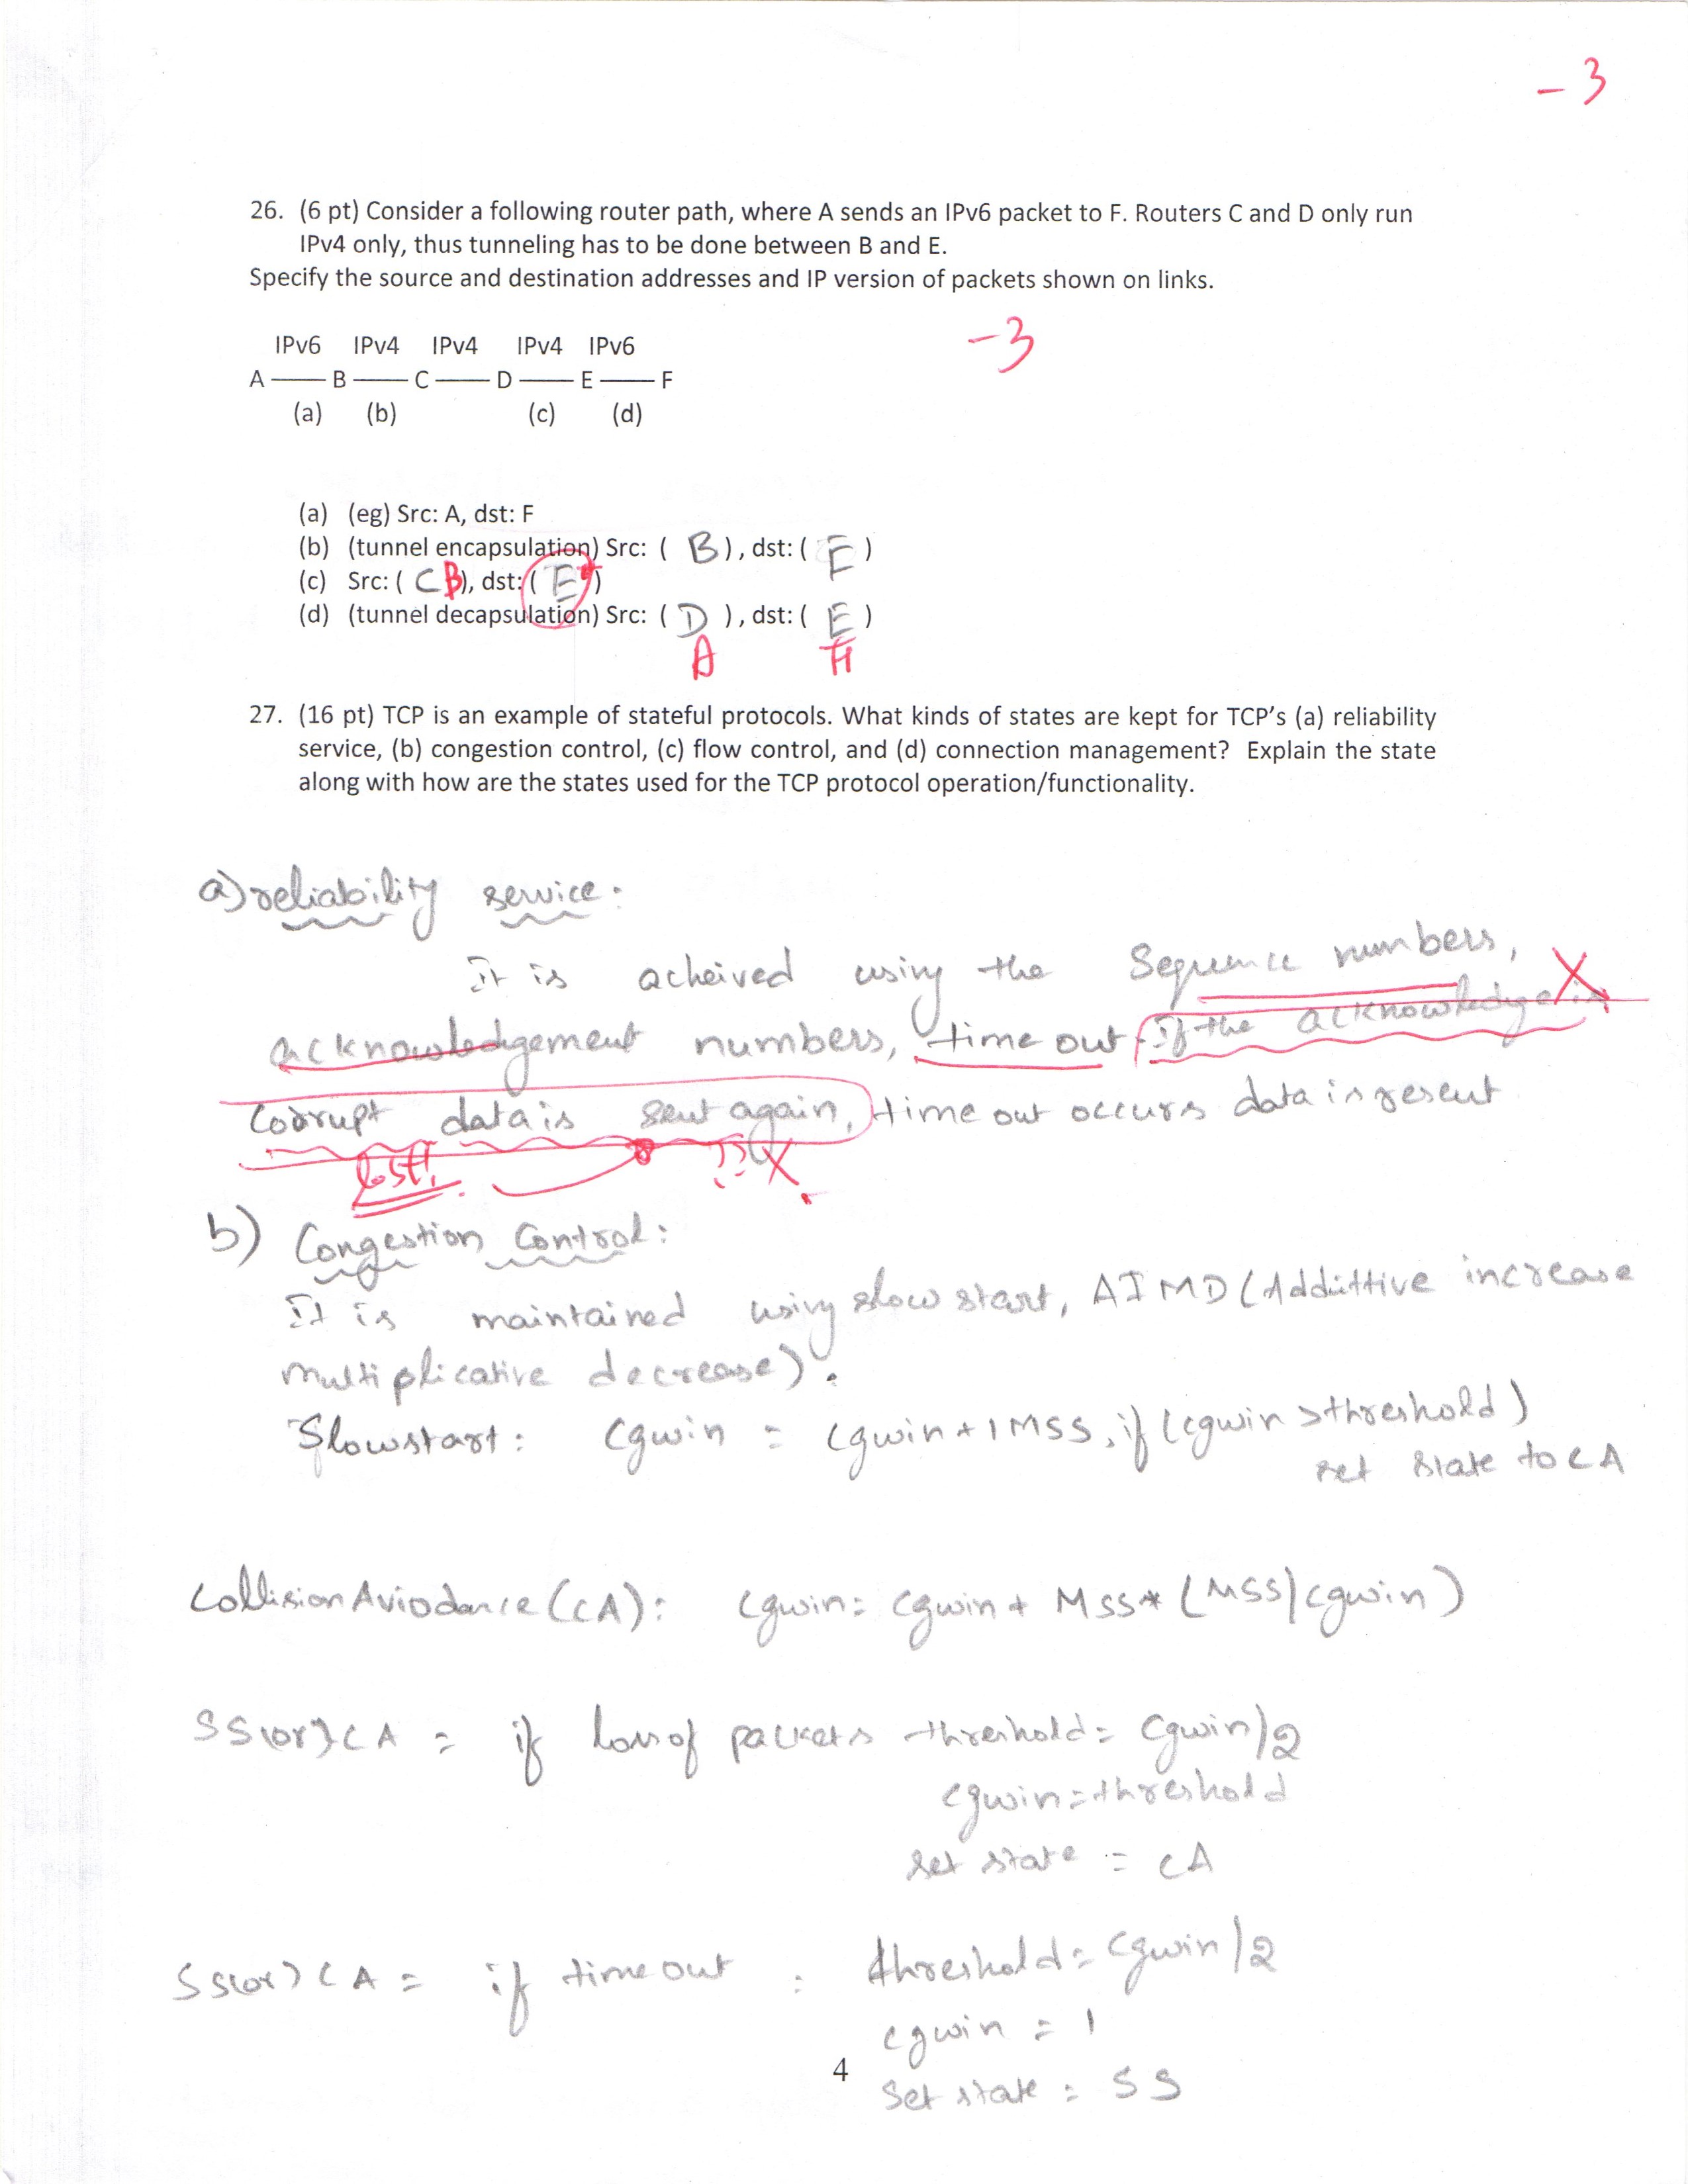 - 3
26. (6 pt) Consider a following router path, where A sends an IPv6 packet to F. Routers C and D only run
IPv4 only, thus tunneling has to be done between B and E.
Specify the source and destination addresses and IP version of packets shown on links.
-3
IPv6 IPv4 IPv4 IPv4 IPv6
A B C D E F
(a) (b) (c) (d)
(a) (eg) Src: A, dst: F
(b) (tunnel encapsulation) Src: ( B ), dst: ( E )
(c) Src: ( C B ), dst: ( E )
(d) (tunnel decapsulation) Src: ( D ), dst: ( E )
A F
27. (16 pt) TCP is an example of stateful protocols. What kinds of states are kept for TCP's (a) reliability
service, (b) congestion control, (c) flow control, and (d) connection management? Explain the state
along with how are the states used for the TCP protocol operation/functionality.
a) reliability service:
It is acheived using the Sequence numbers, X
acknowledgement numbers, time out if the acknowledge is
corrupt data is sent again, time out occurs data is resent
lost! ?? X
b) Congestion Control:
It is maintained using slow start, AIMD (Addittive increase
multiplicative decrease).
Slowstart: cgwin = cgwin + 1 MSS, if (cgwin > threshold)
set state to CA
Collision Aviodance (CA): cgwin = cgwin + MSS * (MSS/cgwin)
SS (or) CA = if loss of packets threshold = cgwin/2
cgwin = threshold
set state = CA
SS (or) CA = if time out : threshold = cgwin/2
cgwin = 1
4
Set state = SS